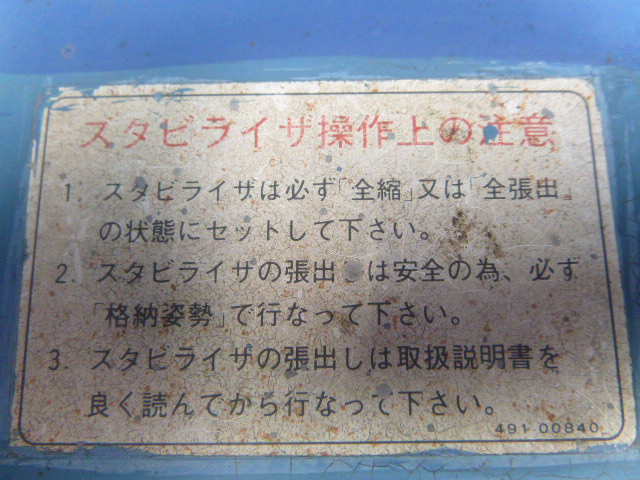 スタビライザ操作上の注意
1 スタビライザは必ず「全縮」又は「全張出」
の状態にセットして下さい。
2. スタビライザの張出しは安全の為、必ず
「格納姿勢」で行なって下さい。
3. スタビライザの張出しは取扱説明書を
良く読んでから行なって下さい。
491-00840